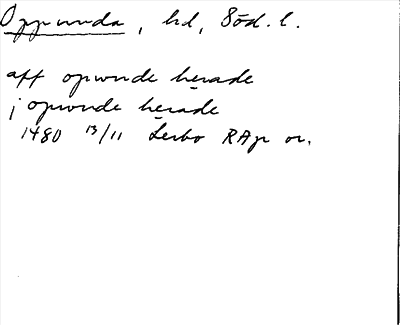 Oppunda, hd, Söd. l.
aff opwnde hērade
j opwnde hērade
1480 13/11 Lerbo RAp or.